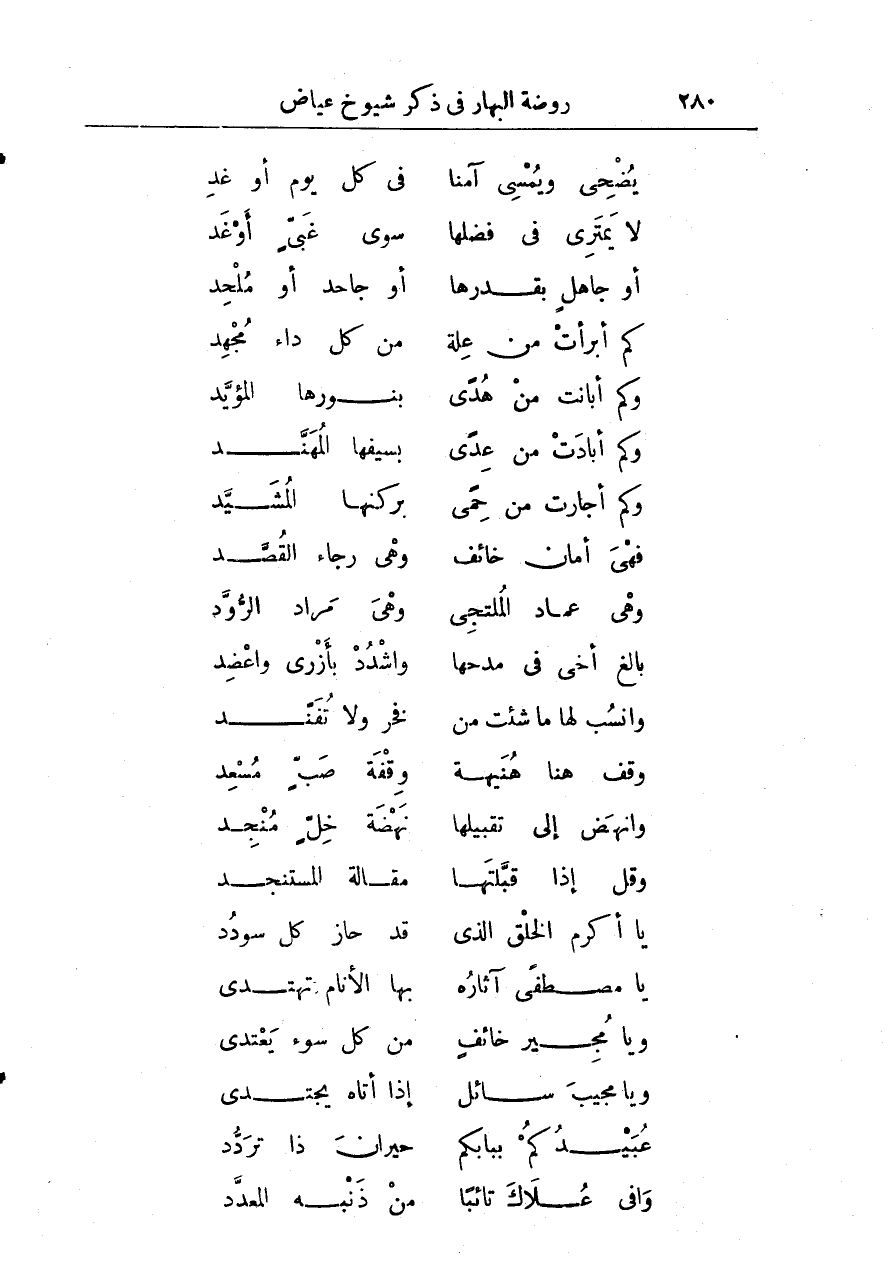 ٢٨٠ روضة البهار فى ذكر شيوخ عياض
يُضْحِى ويُمْسِى آمنا فى كل يوم أو غدِ
لا يَمْتَرِى فى فضلها سوى غَبىٍّ أَوْغَد
أو جاهلٍ بقدرها أو جاحد أو مُلْحِد
كم أبرأتْ من عِلة من كل داء مُجْهِد
وكم أبانت منْ هُدًى بنورها المؤيَّد
وكم أبادَتْ من عِدًى بسيفها المُهَنَّد
وكم أجارت من حِمًى بركنها المُشَيَّد
فهْىَ أمان خائف وهْى رجاء القُصَّد
وهْى عماد المُلتجِى وهْىَ مَراد الرُّوَّد
بالغ أخى فى مدحها واشْدُدْ بأَزْرى واعْضِد
وانسُب لها ما شئت من فخر ولا تُفَنَّد
وقف هنا هُنَيهة وِقْفَة صَبٍّ مُسْعِد
وانهَض إلى تقبيلها نَهْضَة خِلٍّ مُنْجِد
وقل إذا قبَّلتَها مقالة المستنجد
يا أكرم الخلْق الذى قد حاز كل سودُد
يا مصطفًى آثارُه بها الأنام تهتدى
ويا مُجِير خائفٍ من كل سوء يَعْتدى
ويا مجيبَ سائل إذا أتاه يجتدى
عُبَيْدُكمُْ ببابكم حيرانَ ذا تردُّد
وَافى عُلَاكَ تائبًا منْ ذَنْبه المعدَّد